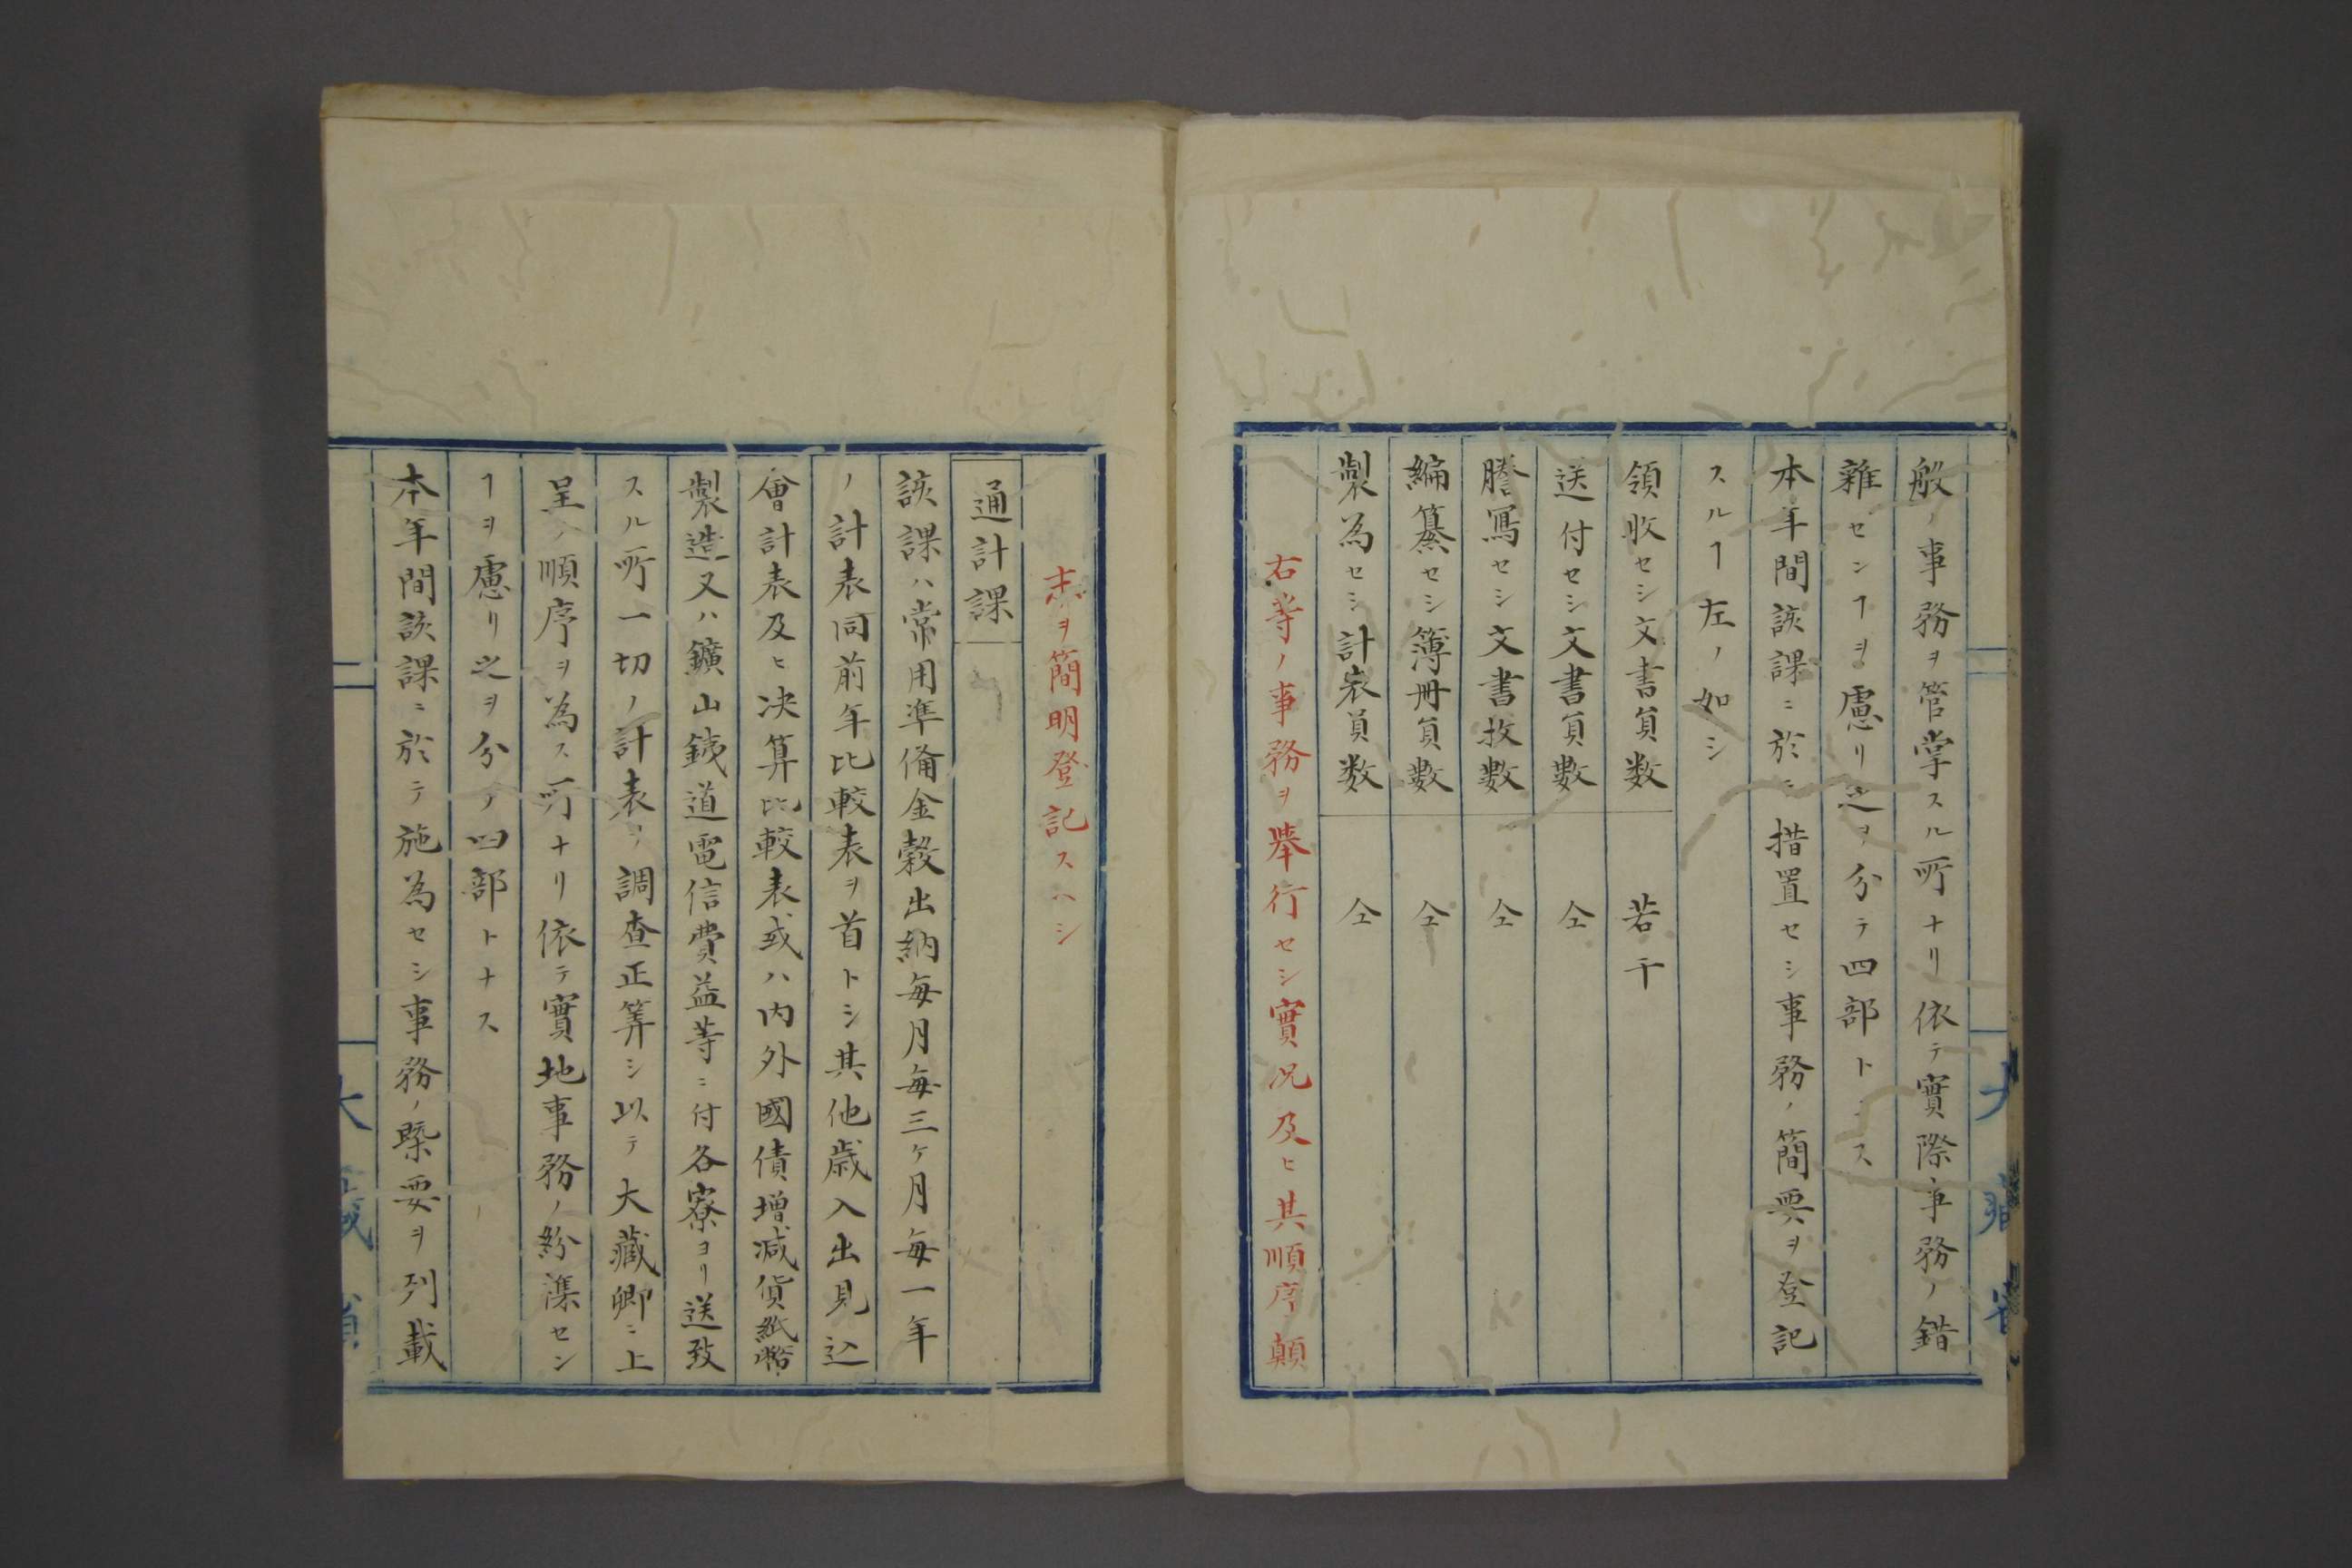 般ノ事務ヲ管掌スル所ナリ依テ實際事務ノ錯
雜センヿヲ慮リ之ヲ分テ四部トス
本年間該課ニ於テ措置セシ事務ノ簡要ヲ登記
スルヿ左ノ如シ
領收セシ文書員数 若干
送付セシ文書員數 仝
謄寫セシ文書枚數 仝
編纂セシ簿冊員數 仝
製為セシ計表員数 仝
右等ノ事務ヲ擧行セシ實况及ヒ其順序顛
末ヲ簡明登記スヘシ
通計課
該課ハ常用準備金穀出納毎月毎三ケ月毎一年
ノ計表同前年比較表ヲ首トシ其他歳入出見込
會計表及ヒ决算比較表或ハ内外國債増减貨紙幣
製造又ハ鑛山鉄道電信費益等ニ付各寮ヨリ送致
スル所一切ノ計表ヲ調查正算シ以テ大藏卿ニ上
呈ノ順序ヲ為ス所ナリ依テ實地事務ノ紛淆セン
ヿヲ慮リ之ヲ分テ四部トナス
本年間該課ニ於テ施為セシ事務ノ槩要ヲ列載
大藏省